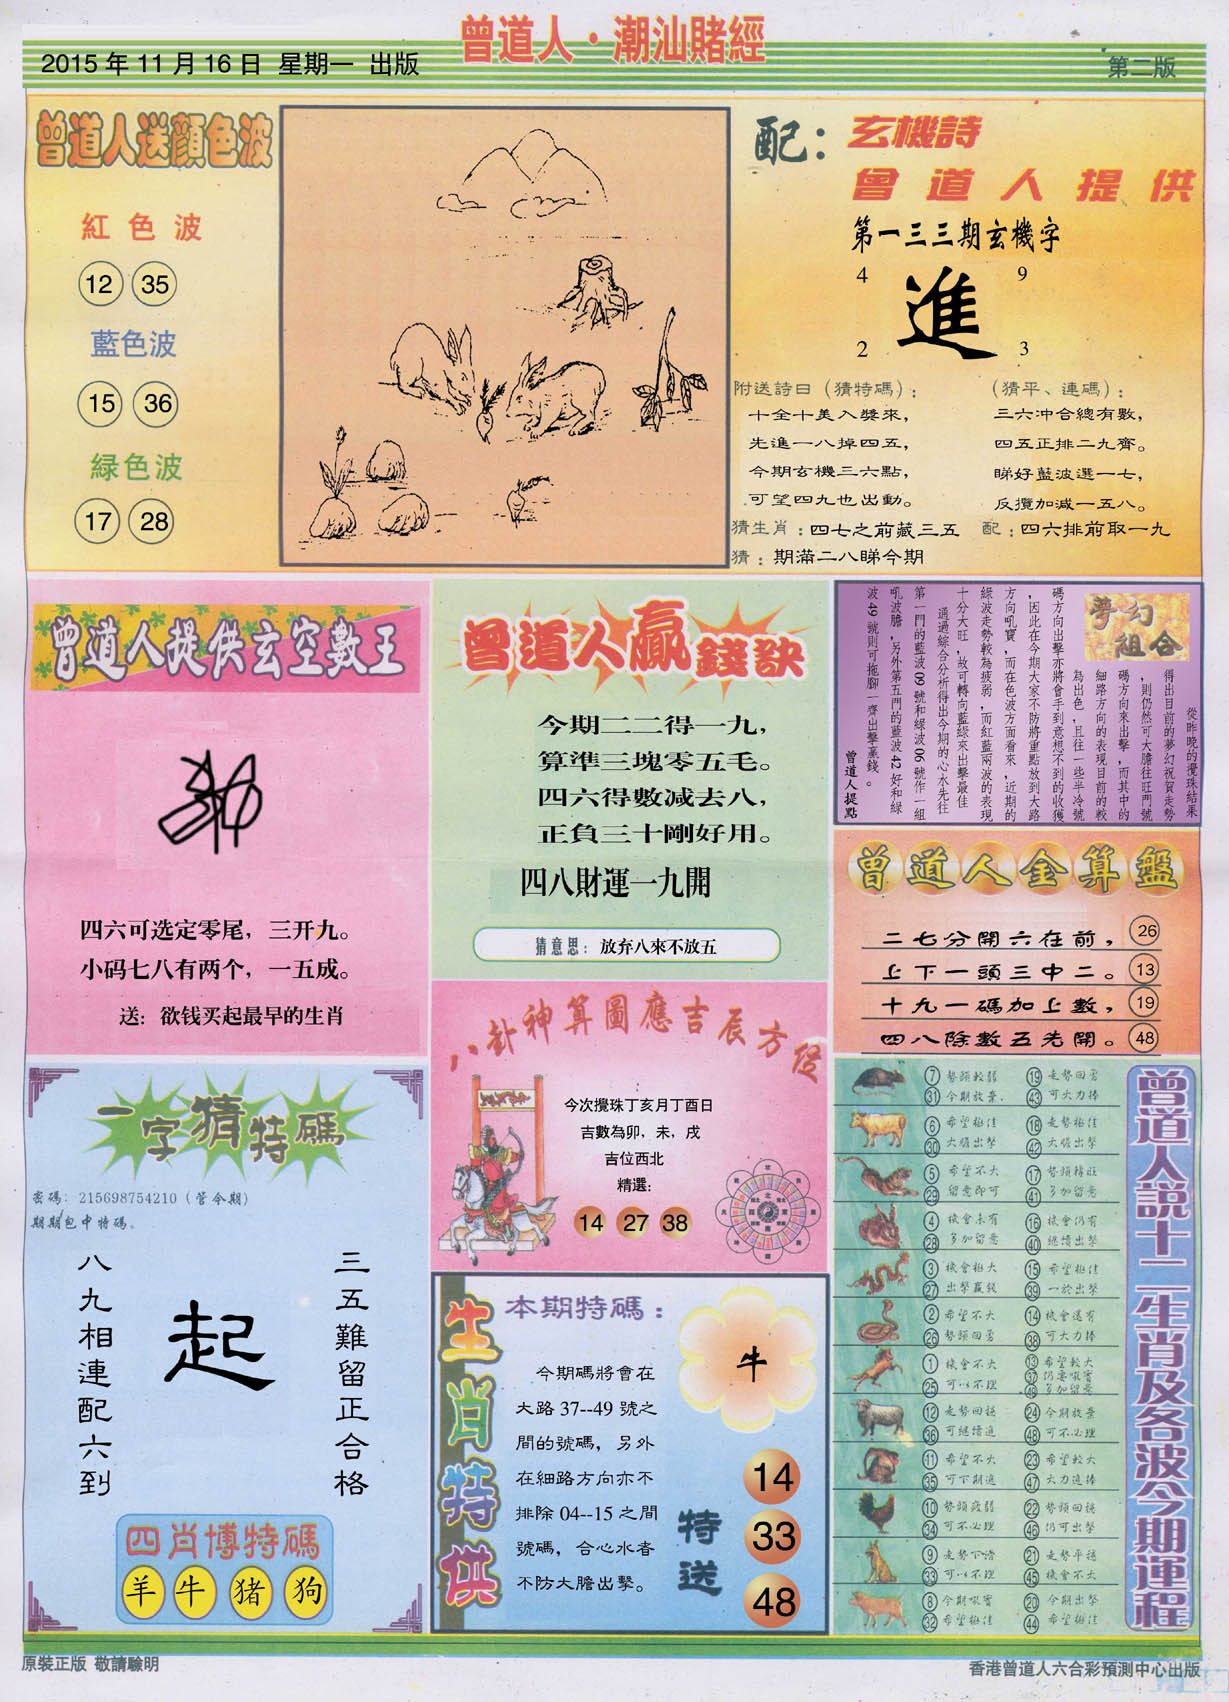 曾道人·潮汕賭經
2015年11月16日 星期一 出版
第二版
曾道人送顏色波
紅色波
12 35
藍色波
15 36
緑色波
17 28
配：
玄機詩
曾道人提供
第一三三期玄機字
4 9
進
2 3
附送詩曰（猜特碼）：
十全十美入獎來，
先進一八掉四五，
今期玄機三六點，
可望四九也出動。
（猜平、連碼）：
三六冲合總有數，
四五正排二九齊。
睇好藍波選一七，
反攬加減一五八。
猜生肖：四七之前藏三五
配：四六排前取一九
猜：期滿二八睇今期
曾道人提供玄空數王
四六可选定零尾，三开九。
小码七八有两个，一五成。
送：欲钱买起最早的生肖
曾道人贏錢訣
今期二二得一九，
算準三塊零五毛。
四六得數减去八，
正負三十剛好用。
四八財運一九開
猜意思：放弃八來不放五
夢幻
組合
從昨晚的攪珠結果
得出目前的夢幻祝賀走勢
，則仍然可大膽往旺門號
碼方向來出擊，而其中的
細路方向的表現目前的較
為出色，且往一些半冷號
碼方向出擊亦將會手到意想不到的收獲
，因此在今期大家不防將重點放到大路
方向吼寶，而在色波方面看來，近期的
綠波走勢較為疲弱，而紅藍兩波的表現
十分大旺，故可轉向藍綠來出擊最佳
通過綜合分析得出今期的心水先往
第一門的藍波09號和綠波06號作一組
吼波膽，另外第五門的藍波42好和綠
波49號則可拖腳一齊出擊贏錢。
曾道人提點
曾道人金算盤
二七分開六在前， 26
上下一頭三中二。 13
十九一碼加上數， 19
四八除數五先開。 48
八卦神算圖應吉辰方位
今次攪珠丁亥月丁酉日
吉數為卯，未，戌
吉位西北
精選：
14 27 38
一字猜特碼
密碼：215698754210（管今期）
期期包中特碼。
三五難留正合格
起
八九相連配六到
四肖博特碼
羊 牛 猪 狗
生肖特供
本期特碼：
牛
今期碼將會在
大路37--49號之
間的號碼，另外
在細路方向亦不
排除04--15之間
號碼，合心水者
不防大膽出擊。
特送
14
33
48
曾道人説十二生肖及各波今期運程
7 勢頭較弱 19 走勢回勇
31 今期放棄 43 可大力捧
6 希望極佳 18 走勢極佳
30 大膽出擊 42 大膽出擊
5 希望不大 17 勢頭轉旺
29 留意即可 41 多加留意
4 機會未有 16 機會仍有
28 多加留意 40 繼續出擊
3 機會極大 15 希望極佳
27 出擊贏錢 39 一於出擊
2 希望不大 14 機會還有
26 勢頭回勇 38 可大力捧
1 機會不大 13 希望較大
25 可以不理 37 仍要吼實
49 多加留意
12 走勢回穩 24 今期放棄
36 可繼續追 48 可不必理
11 希望不大 23 希望較大
35 可下期追 47 大力追捧
10 勢頭疲弱 22 勢頭回穩
34 可不必理 46 仍可出擊
9 走勢下滑 21 走勢平穩
33 可以不理 45 機會不大
8 今期吼實 20 今期出擊
32 希望極佳 44 希望極佳
原裝正版 敬請驗明
香港曾道人六合彩預測中心出版